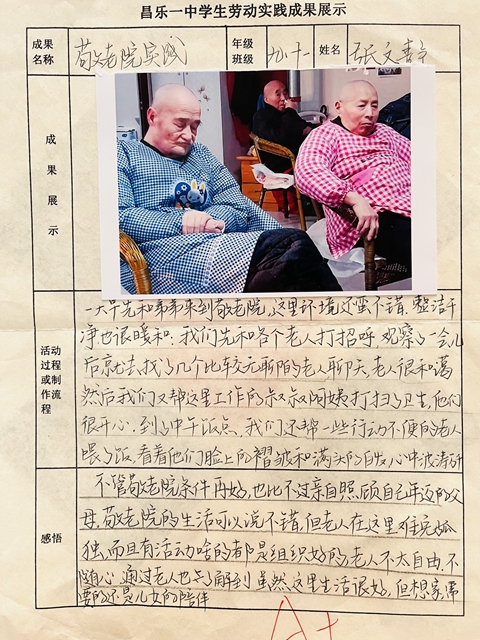 昌乐一中学生劳动实践成果展示
成果名称 敬老院实践 年级班级 九.十一 姓名 张文
成果展示
活动过程或制作流程
一大早先和弟弟来到敬老院,这里环境还蛮不错,整洁干
净也很暖和;我们先和各个老人打招呼,观察了一会儿
后就去找了几个比较无聊的老人聊天,老人很和蔼
然后我们又帮这里工作的叔叔阿姨打扫了卫生,他们
很开心,到了中午饭点,我们还帮一些行动不便的老人
喂了饭,看着他们脸上的褶皱和满头的白发心中波涛
感悟
不管敬老院条件再好,也比不过亲自照顾自己年迈的父
母,敬老院的生活可以说不错,但老人在这里难免孤
独,而且有活动啥的都是组织好的,老人不太自由,不
随心,通过老人也了解到虽然这里生活很好,但想家,需
要的还是儿女的陪伴
A+